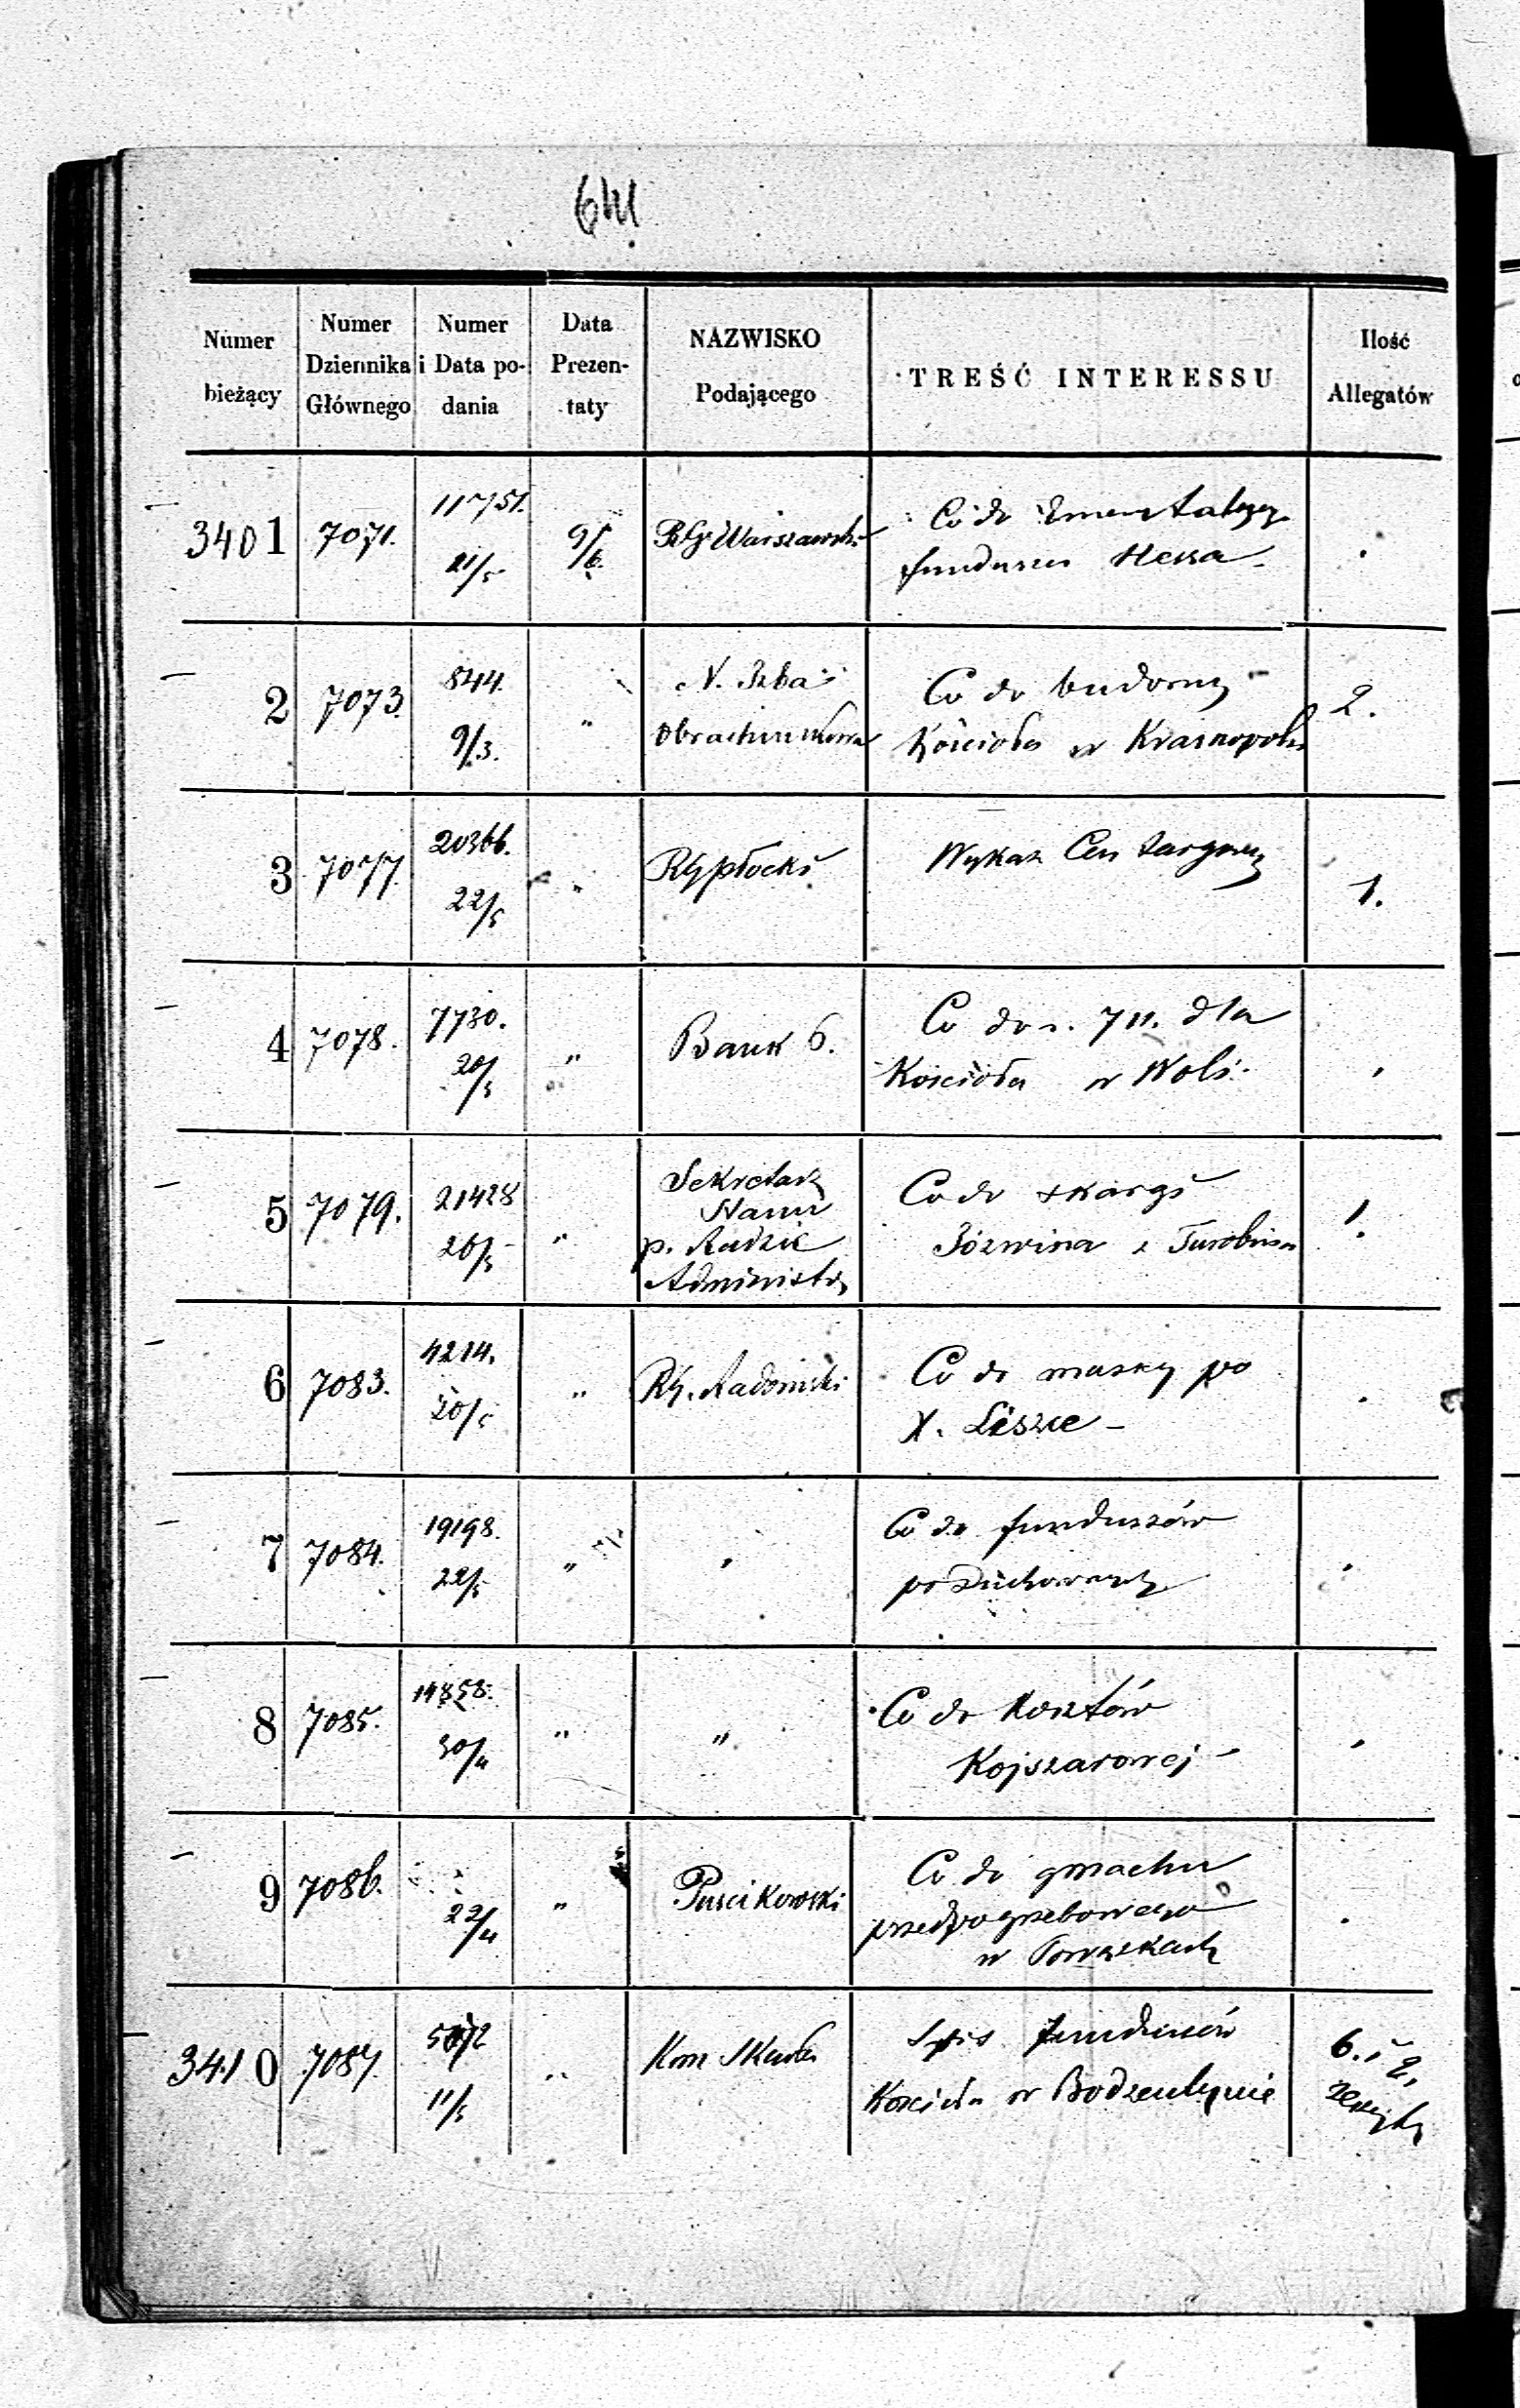 641
Numer bieżący | Numer Dziennika Głównego | Numer i Data podania | Data Prezentaty | NAZWISKO Podającego | TREŚĆ INTERESSU | Ilość Allegatów
3401 7071. 11751. 21/5 9/6. RG Warszawski Co do
funduszu Hessa
2 7073. 844. 9/3. " N. Izba Obrachunkowa Co do budowy 2.
Kościoła w Krasnopolu
3 7077. 20366. 22/5 " RG Płocki Wykaz Cen targowy 1.
4 7078. 7730. 20/5 " Bank P. Co do r. 711. dla
Kościoła w Woli
5 7079. 21428 26/5 " Sekretarz Co do skargi 1.
Stanu
p. Radzie Józwina z Turobina
Administr
6 7083. 4214. 20/5 " RG. Radomski Co do massy po
X. Liszce
7 7084. 19198. 22/5 " " Co do funduszów
po Duchownych
8 7085. 14858. 30/4 " " Co do Kosztów
Kojszarowej
9 7086. 22/4 " Puscikowski Co do gmachu
przedpogrzebowego
w Powązkach
3410 7087. 11/5 " Kom Skarbu Spis funduszów 6. i 2.
Kościoła w Bodzentynie zeszyty